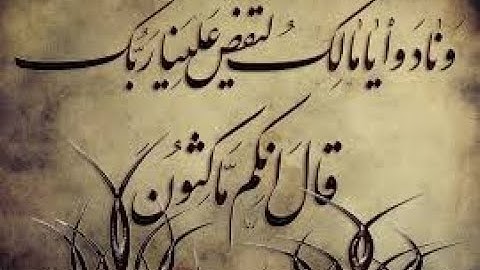 وَنَادَوْا يَا مَالِكُ لِيَقْضِ عَلَيْنَا رَبُّكَ
قَالَ إِنَّكُم مَّاكِثُونَ